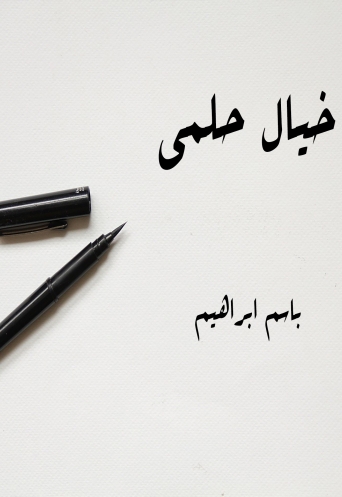 خيال حلمى
باسم ابراهيم